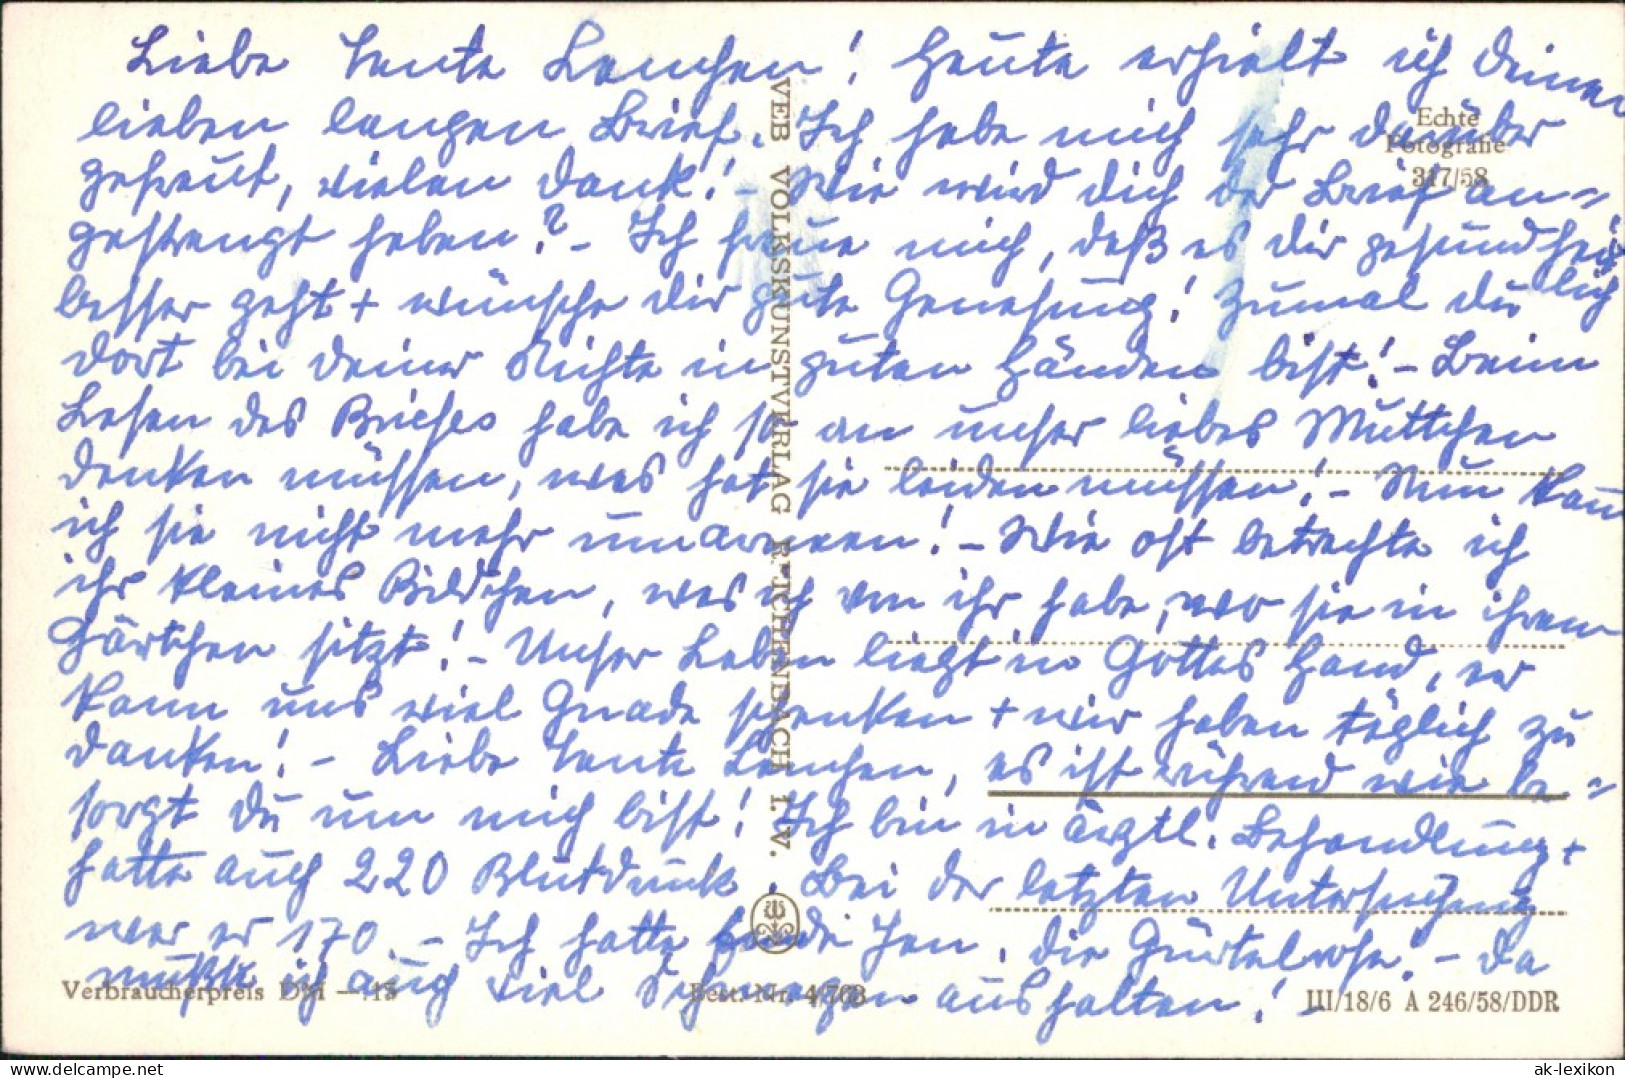 Liebe Tante Lenchen! Heute erhielt ich Deinen
lieben langen Brief. Ich habe mich sehr darüber
gefreut, vielen Dank! - Wie wird dich der Brief an=
gestrengt haben? - Ich freue mich, daß es dir gesundheit
lich
besser geht + wünsche dir gute Genesung! Zumal du
dort bei deiner Nichte in guten Händen bist! - Beim
Lesen des Briefes habe ich so an unser liebes Muttchen
denken müssen, was hat sie leiden müssen! - Nun kann
ich sie nicht mehr umarmen! - Wie oft betrachte ich
ihr kleines Bildchen, was ich von ihr habe, wo sie in ihrem
Gärtchen sitzt! - Unser Leben liegt in Gottes Hand, er
kann uns viel Gnade schenken + wir haben täglich zu
danken! - Liebe Tante Lenchen, es ist rührend wie be=
sorgt du um mich bist! Ich bin in ärztl. Behandlung +
hatte auch 220 Blutdruck. Bei der letzten Untersuchung
war er 170. - Ich hatte Ende Jan. die Gürtelrose! - Da
mußte ich auch viel Schmerzen aushalten! -
Echte
Fotografie
317/58
VEB VOLKSKUNSTVERLAG REICHENBACH I. V.
Verbraucherpreis DM —.15
Best.-Nr. 4/763
III/18/6 A 246/58/DDR
www.delcampe.net
ak-lexikon